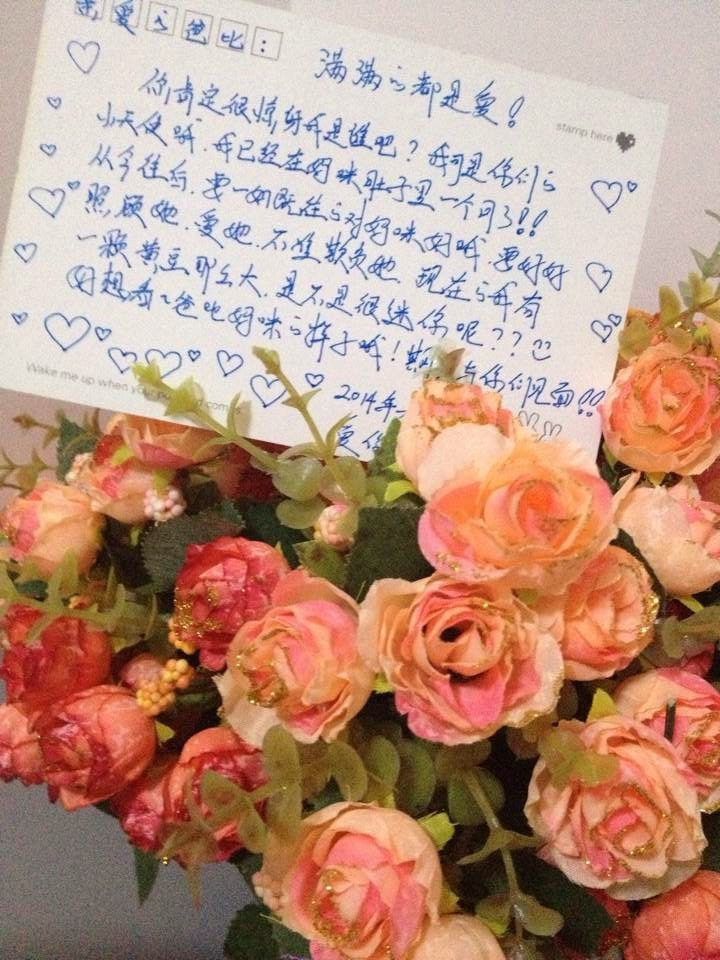 亲爱的爸比：
满满的都是爱！
stamp here
你肯定很惊讶我是谁吧？我可是你们的
小天使哦.我已经在妈咪肚子里一个月了!!
从今往后,要一如既往的对妈咪好哦,要好好
照顾她.爱她.不准欺负她.现在的我有
一颗黄豆那么大.是不是很迷你呢？??
好想看看爸比妈咪的样子哦！与你们见面!!
Wake me up when you
2014年